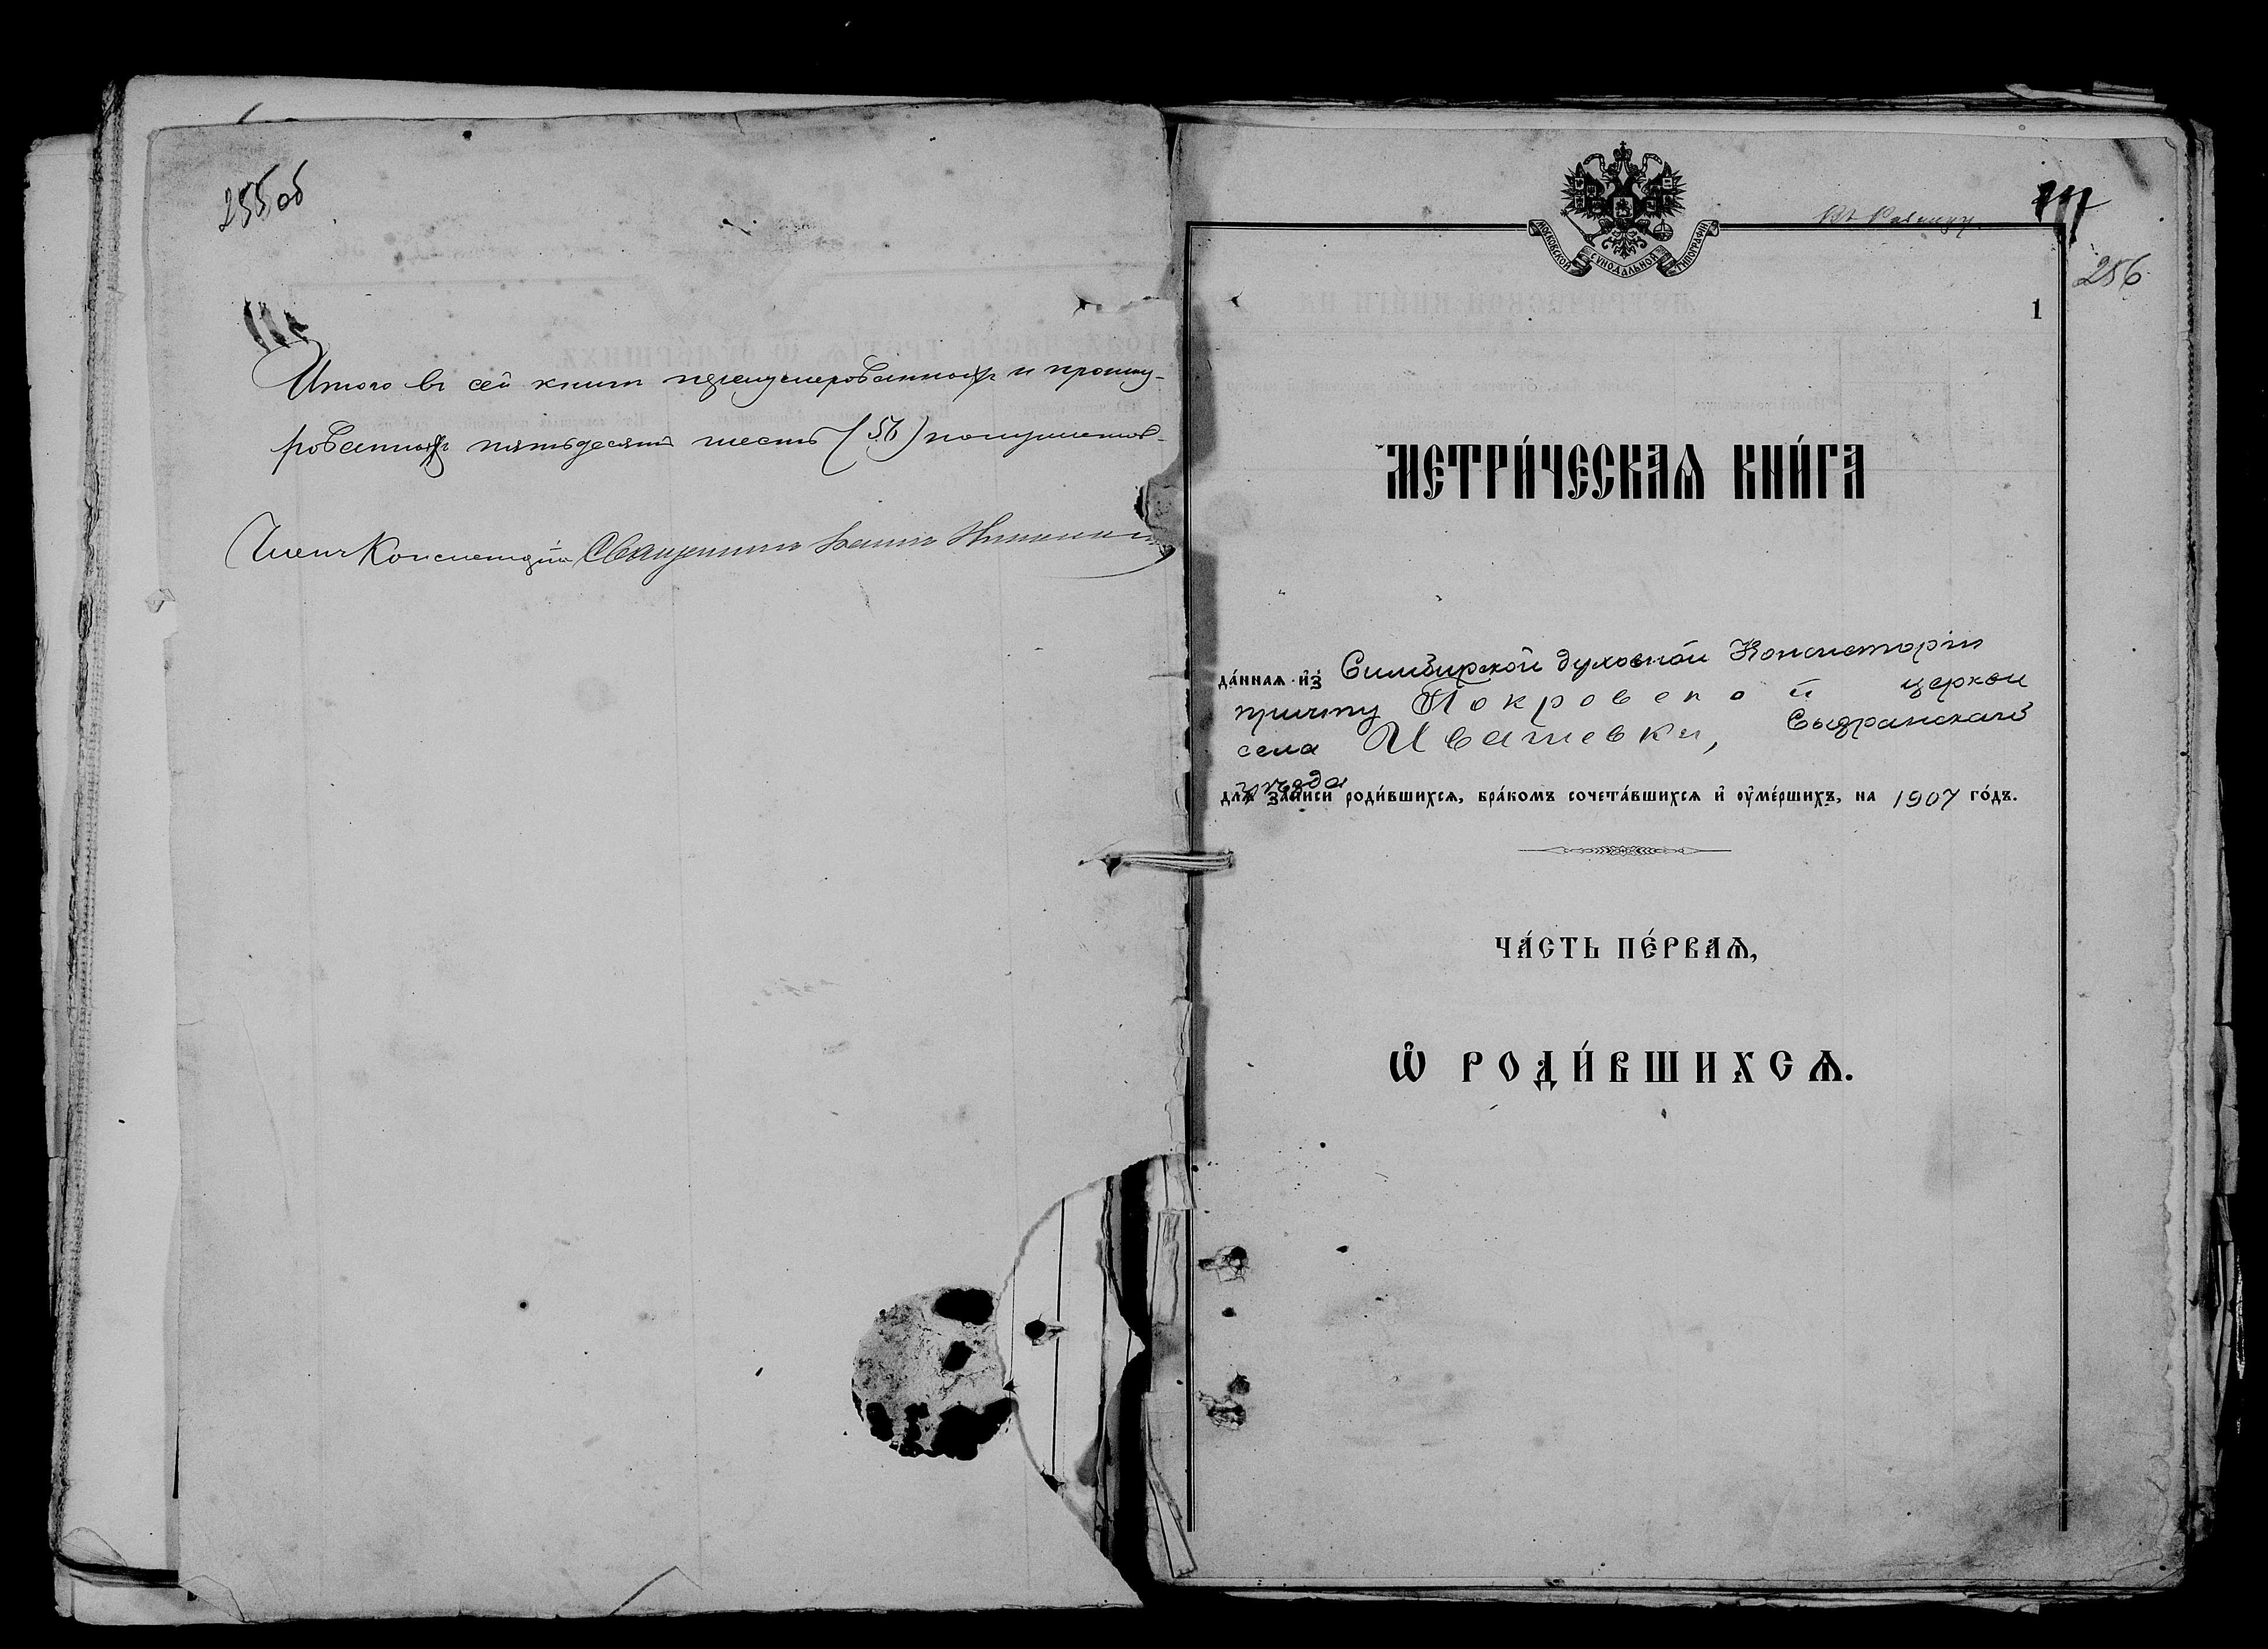 255об
Итого въ сей книгѣ пренумерованныхъ и прошну-
рованныхъ пятьдесятъ шесть (56) полулистовъ
Членъ Консисторіи Священникъ
МОСКОВСКОЙ СѴНОДАЛЬНОЙ ТИПОГРАФІИ
256
1
МЕТРИ́ЧЕСКАѦ КНИ́ГА
да́ннаѧ и҆з̾ Симбирской духовной Консисторіи
причту Покровской церкви
села Ивашевки, Сызранскаго
уѣзда
длѧ̀ за́писи роди́вшихсѧ, бра́комъ сочета́вшихсѧ и҆ ѹ҆ме́ршихъ, на 1907 го́дъ.
ЧА́СТЬ ПЕ́РВАѦ,
Ѽ РОДИ́ВШИХСѦ.